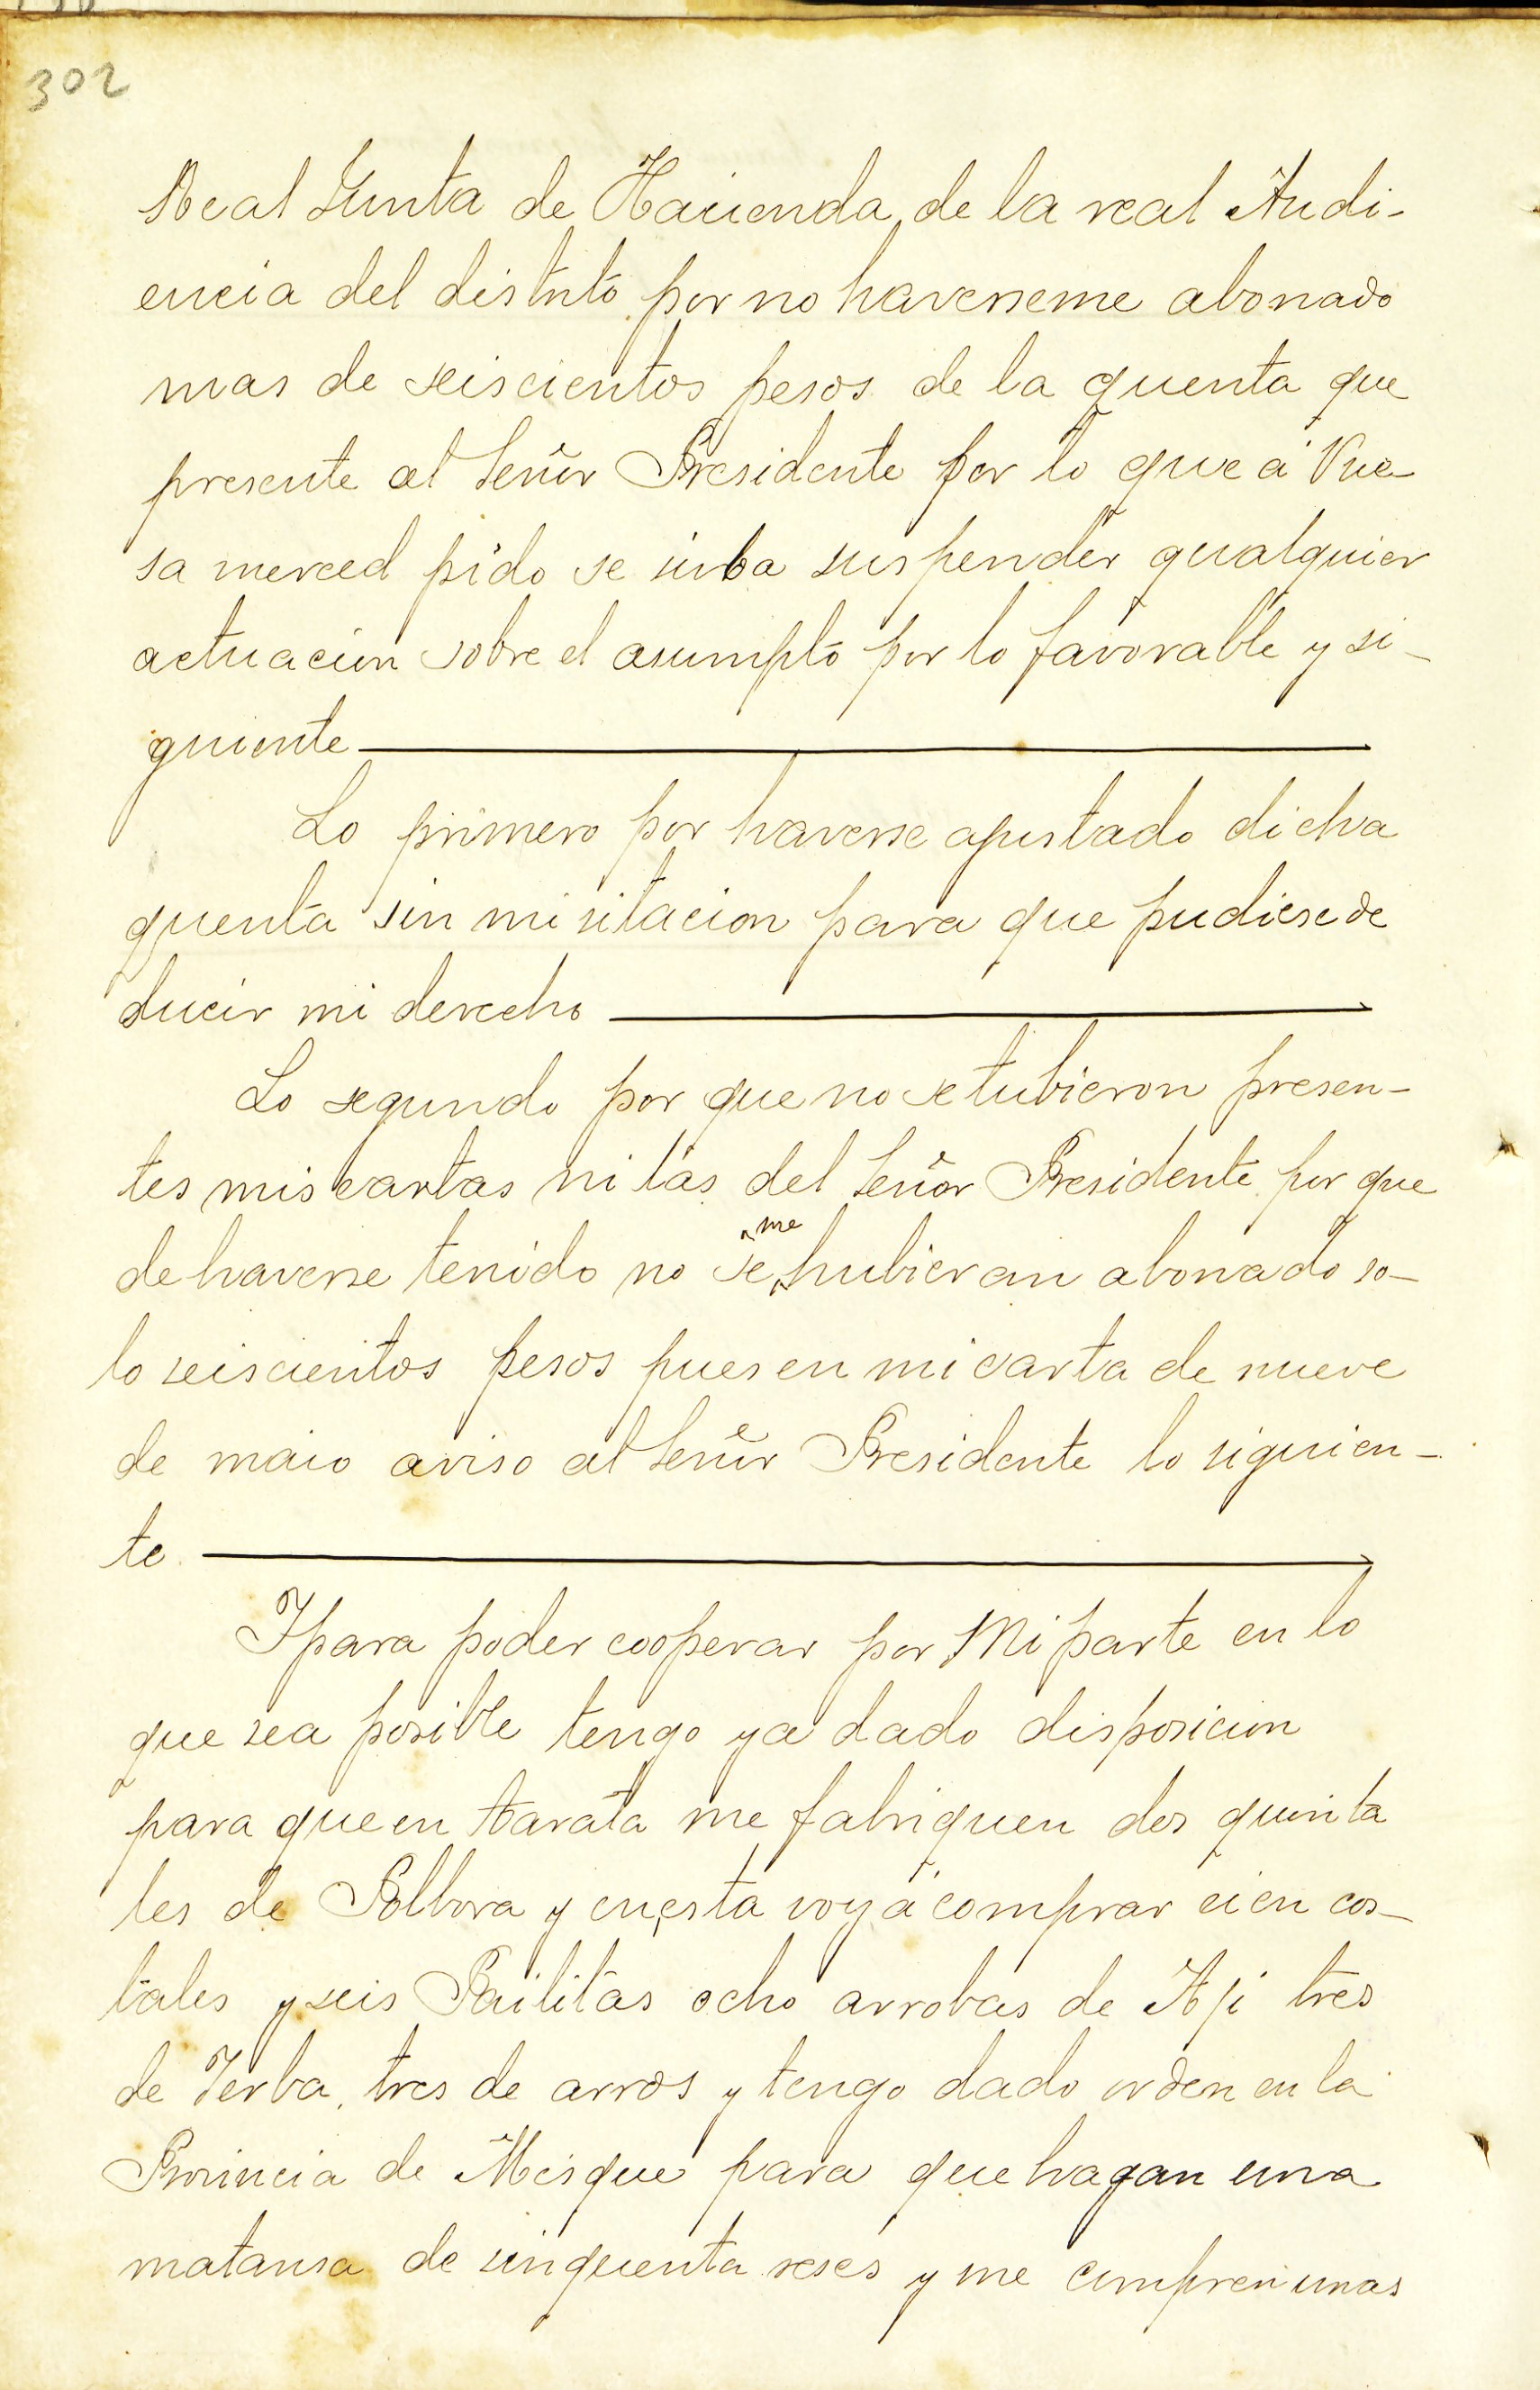 302
Real Junta de Hacienda de la real Audi-
encia del distrito por no haverseme abonado
mas de seiscientos pesos de la quenta que
presente al Señor Presidente por lo que á Vue-
sa merced pido se sirba suspender qualquier
actuacion sobre el asumpto por lo favorable y si-
guiente
Lo primero por haverse ajustado dicha
quenta sin mi sitacion para que pudiese de
ducir mi derecho
Lo segundo por que no se tubieron presen-
tes mis cartas ni las del Señor Presidente por que
de haverse tenido no se me hubieran abonado so-
lo seiscientos pesos pues en mi carta de nueve
de maio aviso al Señor Presidente lo siguien-
te
Ipara poder cooperar por Mi parte en lo
que sea posible tengo ya dado disposicion
para que en tarata me fabriquen dos quinta
les de Polbora y en esta voy á comprar cien cos-
tales y seis Pailitas ocho arrobas de Aji tres
de Yerba, tres de arros y tengo dado orden en la
Provincia de Misque para que hagan una
matansa de sinquenta reses y me compren unas